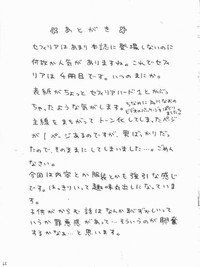 ☆あとがき☆
セフィリアはあまり本誌に登場しないのに
何故か人気がありますね。こんでセフィ
リアは4冊目です。いつのまにか。
表紙がちょっとセフィリアハードとかぶっ
ちゃったような気がします。
主線をまちがってトーン化してしまったページ
が1ページあるのですが、実はかりだっ
たので、そのままにしてしまいました…。ごめん
なさい。
今回は内容とか服装とかも強引な感じ
です。はっきりいって趣味丸出しになっていま
す。
子供がからむ話はなんかあずかしいって
いうか罪悪感があって…そういうのが興奮
するかなぁ…と思います。